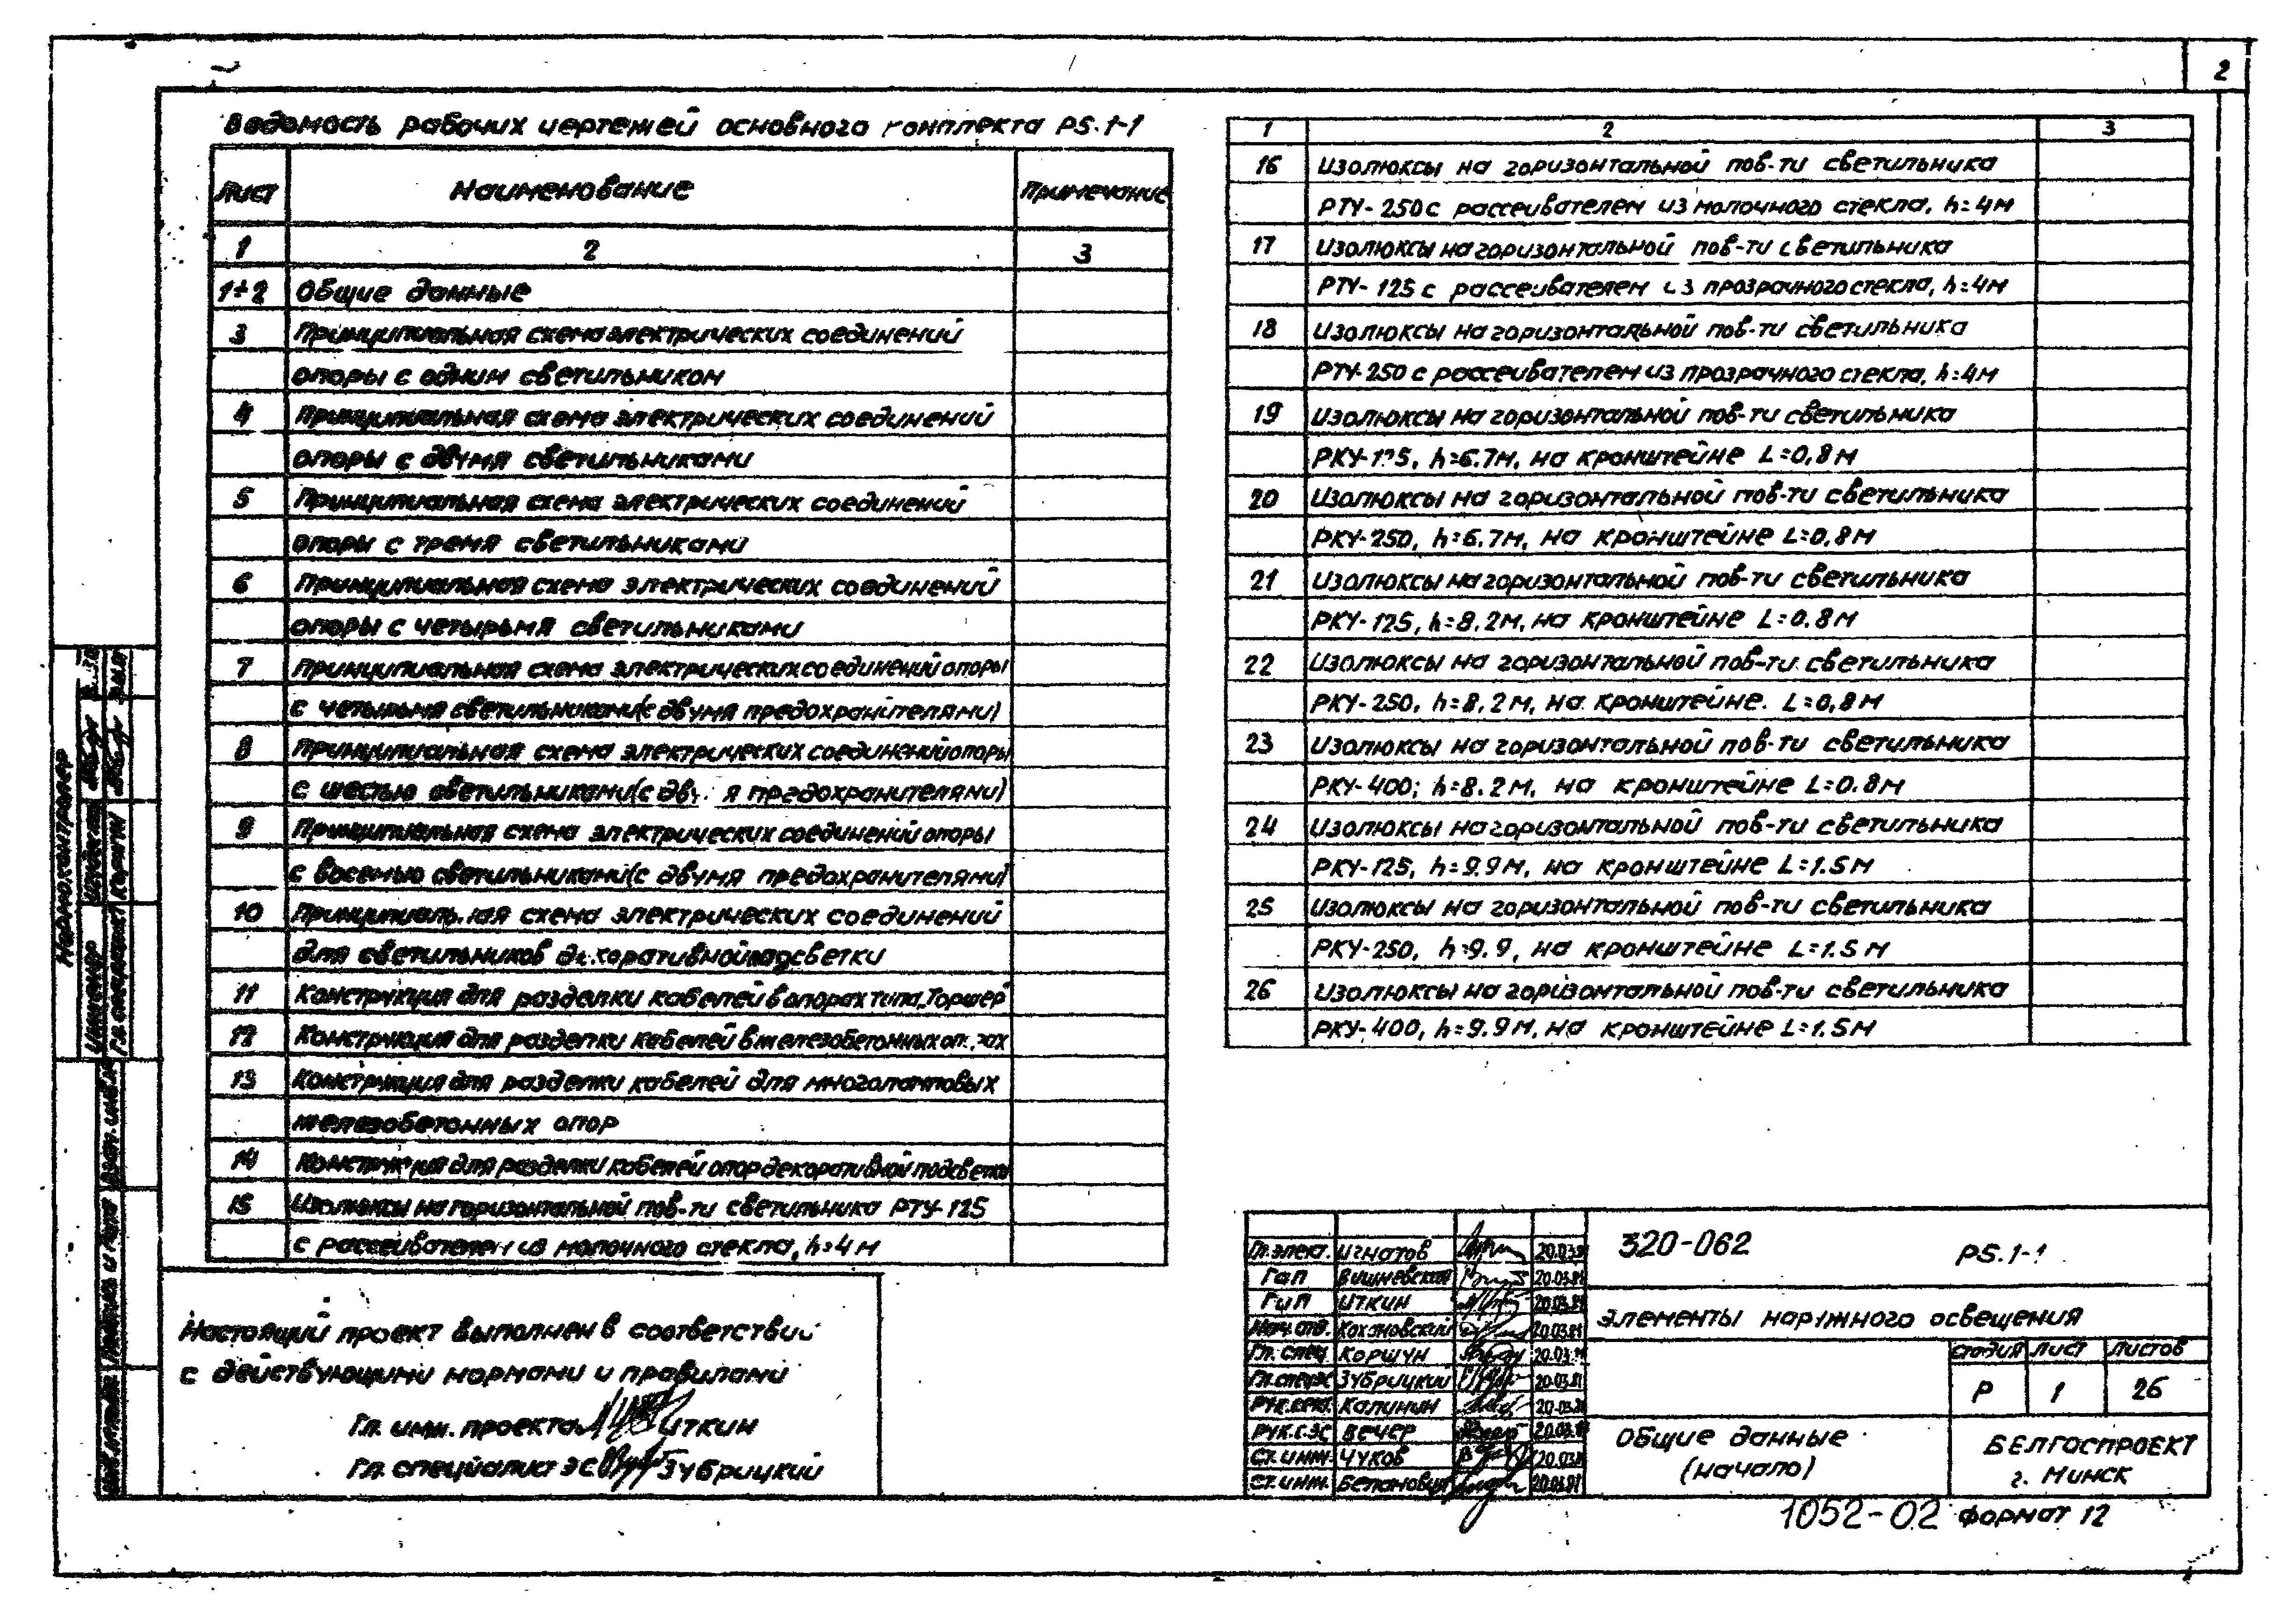 2
Ведомость рабочих чертежей основного комплекта PS.1-1
Лист Наименование Примечание
1 2 3
1÷2 Общие данные
3 Принципиальная схема электрических соединений
опоры с одним светильником
4 Принципиальная схема электрических соединений
опоры с двумя светильниками
5 Принципиальная схема электрических соединений
опоры с тремя светильниками
6 Принципиальная схема электрических соединений
опоры с четырьмя светильниками
7 Принципиальная схема электрических соединений опоры
с четырьмя светильниками (с двумя предохранителями)
8 Принципиальная схема электрических соединений опоры
с шестью светильниками (с предохранителями)
9 Принципиальная схема электрических соединений опоры
с восемью светильниками (с двумя предохранителями)
10 Принципиальная схема электрических соединений
для светильников декоративной подсветки
11 Конструкция для разделки кабелей в опорах типа „Торшер"
12 Конструкция для разделки кабелей в железобетонных
13 Конструкция для разделки кабелей для многоламповых
железобетонных опор
14 Конструкция для разделки кабелей опор декоративной подсветки
15 Изолюксы на горизонтальной пов-ти светильника РТУ-125
с рассеивателем из молочного стекла, h=4м
1 2 3
16 Изолюксы на горизонтальной пов-ти светильника
РТУ-250 с рассеивателем из молочного стекла, h=4м
17 Изолюксы на горизонтальной пов-ти светильника
РТУ-125 с рассеивателем из прозрачного стекла, h=4м
18 Изолюксы на горизонтальной пов-ти светильника
РТУ-250 с рассеивателем из прозрачного стекла, h=4м
19 Изолюксы на горизонтальной пов-ти светильника
РКУ-125, h=6.7м, на кронштейне L=0,8м
20 Изолюксы на горизонтальной пов-ти светильника
РКУ-250, h=6.7м, на кронштейне L=0,8м
21 Изолюксы на горизонтальной пов-ти светильника
РКУ-125, h=8.2м, на кронштейне L=0.8м
22 Изолюксы на горизонтальной пов-ти светильника
РКУ-250, h=8,2м, на кронштейне. L=0,8м
23 Изолюксы на горизонтальной пов-ти светильника
РКУ-400; h=8.2м, на кронштейне L=0.8м
24 Изолюксы на горизонтальной пов-ти светильника
РКУ-125, h=9.9м, на кронштейне L=1.5м
25 Изолюксы на горизонтальной пов-ти светильника
РКУ-250, h=9.9, на кронштейне L=1.5м
26 Изолюксы на горизонтальной пов-ти светильника
РКУ-400, h=9.9м, на кронштейне L=1.5м
Нормоконтролер
Инженер
Гл. специалист Коршун
Взам. инв. №
Подпись и дата
Настоящий проект выполнен в соответствии
с действующими нормами и правилами
Гл. инж. проекта Иткин
Гл. специалист ЭС Зубрицкий
Гл. элект. Игнатов 20.03.81
ГАП Вишневская 20.03.81
ГИП Иткин 20.03.81
Нач. отд. Кохановский 20.03.81
Гл. спец. Коршун 20.03.81
Гл. спец. ЭС Зубрицкий 20.03.81
Калинин 20.03.81
Рук. г. ЭС Вечер 20.03.81
Ст. инж. Чуков 20.03.81
Ст. инж. 20.03.81
320-062 PS.1-1
Элементы наружного освещения
Стадия Лист Листов
Р 1 26
Общие данные
(начало)
БЕЛГОСПРОЕКТ
г. Минск
1052-02 Формат 12